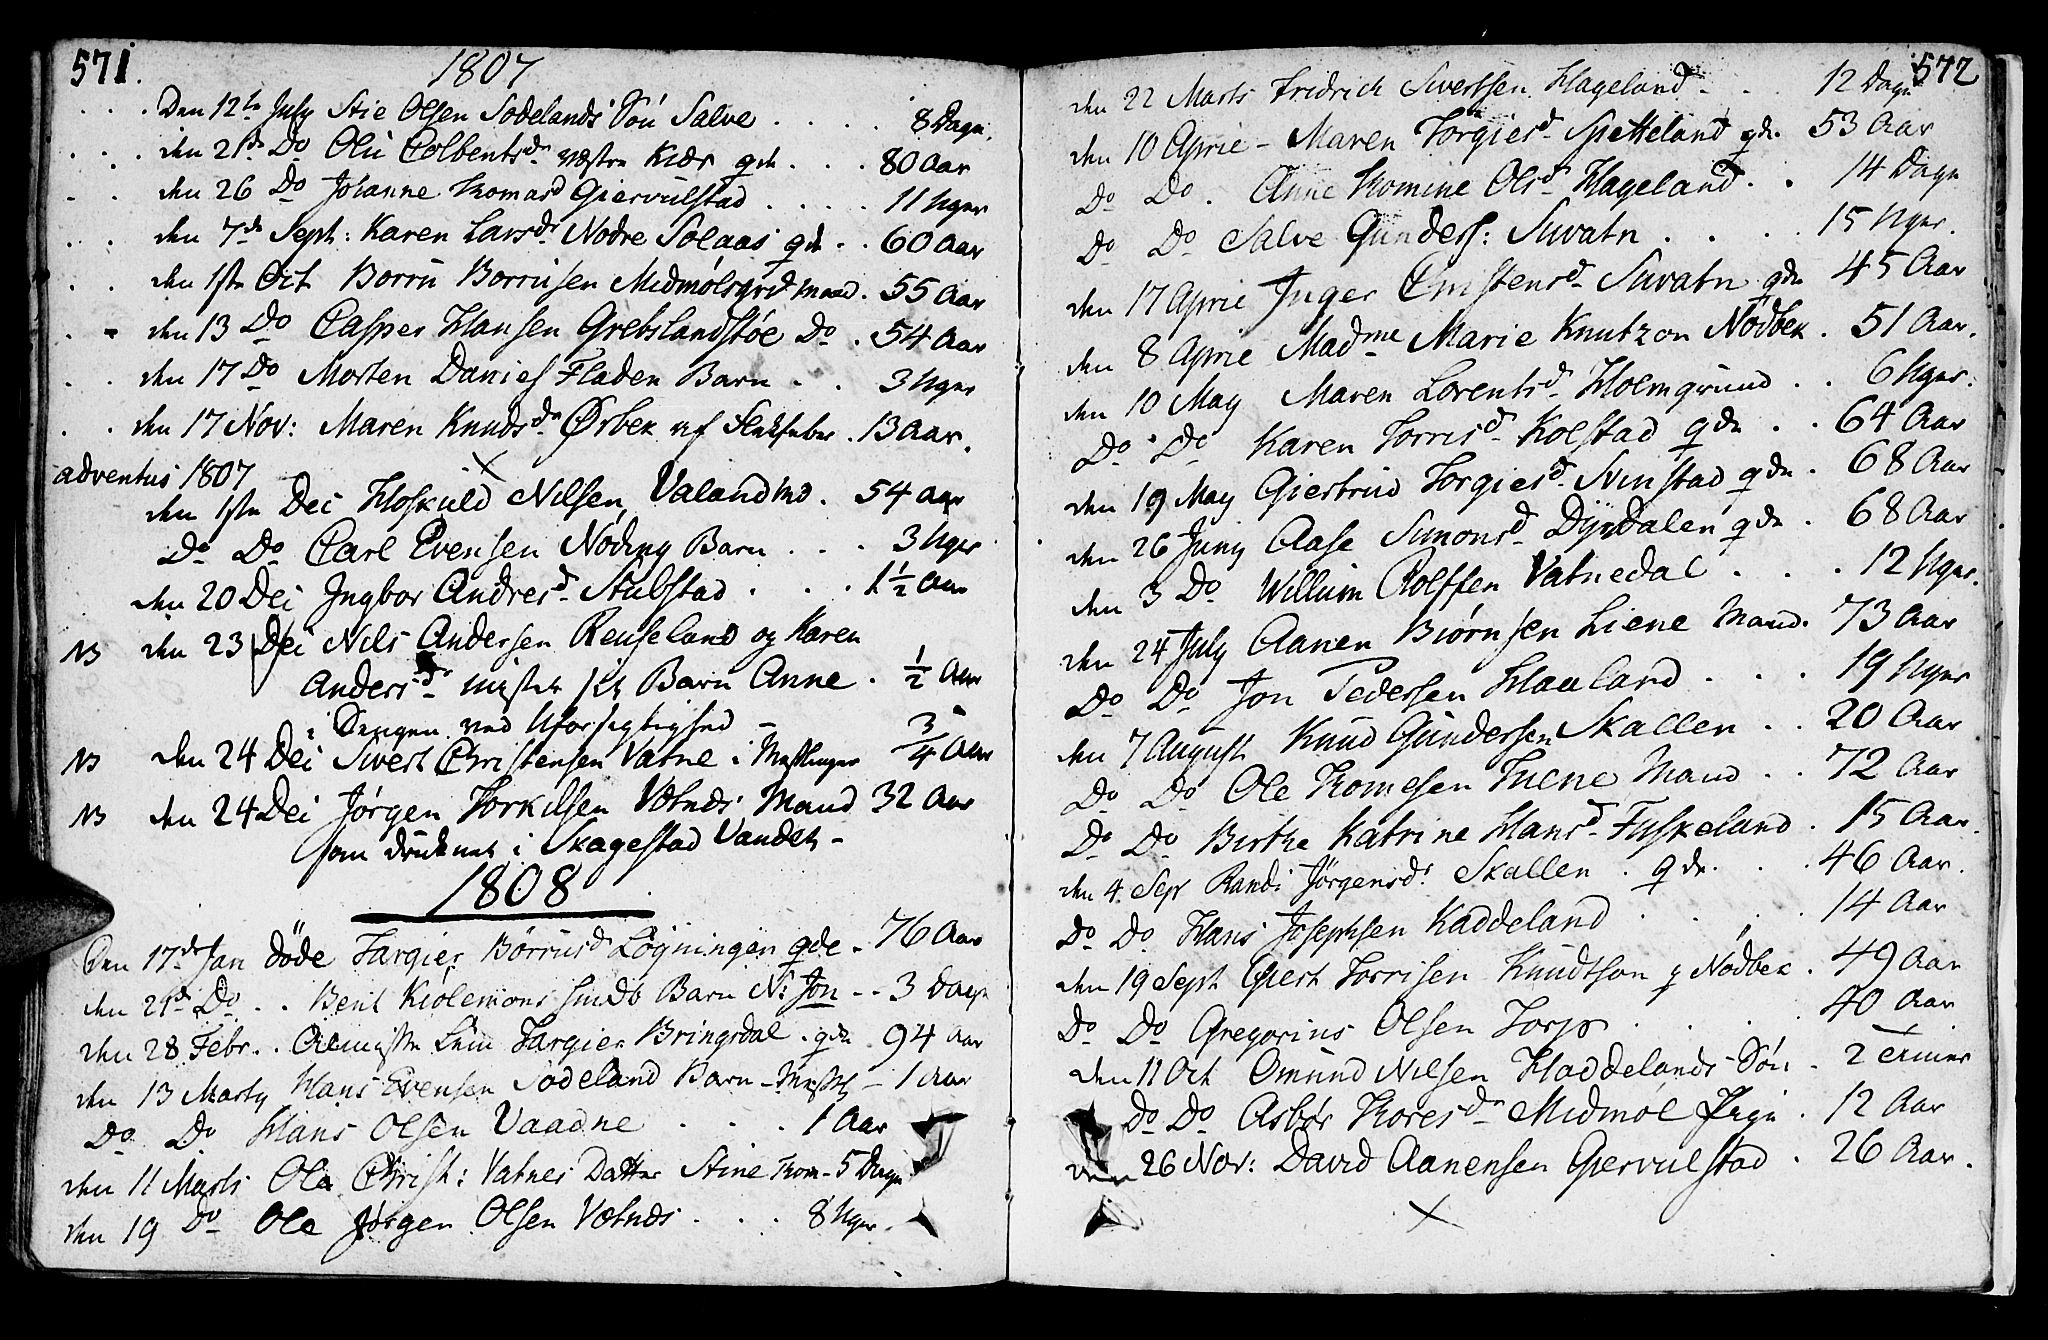 571.
1807
Den 12te July Stie Olsen Sodelands Søn Salve 8 Dage.
den 21de Do Oli Colbentsdr Kiær gde 80 Aar
den 26 Do Johanne Thomasd Giervulstad 11 Uger
den 7de Sept: Karen Larsdr Nodre Solaas gde 60 Aar
den 1ste Oct Borru Borrusen Midmølsgrd Mand. 55 Aar
den 13 Do Casper Hansen Grebslandsføe Do. 54 Aar
den 17 Do Morten Daniels Fladen Barn 3 Uger
den 17 Nov: Maren Knudsdr Ørbek af 13 Aar.
adventus 1807
den 1ste Dec Hoskuld Nilsen, Valand Md. 54 Aar
Do Do Carl Evensen Noding Barn 3 Uger
den 20 Dec Ingbor Andresd Stubstad 1 1/2 Aar
NB den 23 Dec Nils Andersen Reuseland og Karen
Andersd mistet sit Barn Anne 1/2 Aar
i Sengen ved Uforsigtighed
NB den 24 Dec Sivert Christensen Vatne i Mesllinger 3/4 Aar
NB den 24 Dec Jørgen Torkilsen Vætnes Mand 32 Aar
som druknet i Skagestad Vandet
1808
Den 17d Jan døde Targier Børrusd Løgningen gde 76 Aar
den 21d Do Berit Kiølemons Barn N: Jon 3 Dage
den 28 Febr. Targier Bringsdal gde 94 Aar
den 13 Marty Hans Evensen Sodeland Barn 1 Aar
Do Do Hans Olsen Vaadne 1 Aar
den 11 Marts Ole Christ: Vatnes Datter Stine Thom 5 Dage
den 19 Do Ole Jørgen Olsen Vætnes 8 Uger
572
den 22 Marts Fridrich Sivertsen Hageland 12 Dage
den 10 Aprie Maren Torgiersd Spetteland gde. 53 Aar
Do Do. Anne Thomine Olsd Hageland 14 Dage
Do Do Salve Gunders: Suvatn 15 Uger.
den 17 Aprie Inger Christensd Suvatn gde 45 Aar
den 8 Aprie Madme Marie Knutzon Nodbek. 51 Aar.
den 10 May Maren Lorentsd Holmgrund 6 Uger.
Do Do Karen Torrisd Kolstad gde 64 Aar
den 19 May Giertrud Torgiersd Ninstad gde. 68 Aar
den 26 Juny Aase Simonsd Dyrdalen gde. 68 Aar
den 3 Do Willum Rolffsen Vatnedal 12 Uger.
den 24 July Aanen Biørnsen Liene Mand. 73 Aar
Do Do Jon Pedersen Haaland 19 Uger
den 7 August Knud Gundersen Skallen 20 Aar
Do Do Ole Thomesen Tuene Mand 72 Aar
Do Do Birthe Katrine Hansd Fuskeland. 15 Aar.
den 4. Sept Randi Jørgensd. Skallen. gde. 46 Aar.
Do Do Hans Josephsen Kaddeland 14 Aar
den 19 Sept Giert Torrisen Knudtson Nodbek. 49 Aar
Do Do Gregorius Olsen Torp 40 Aar
den 11 Oct Omund Nilsen Haddelands Søn 2 Timer
Do Do Asbør Thoresdr Midmøl Pige. 12 Aar
den 26 Nov: David Aanensen Giervulstad. 26 Aar.